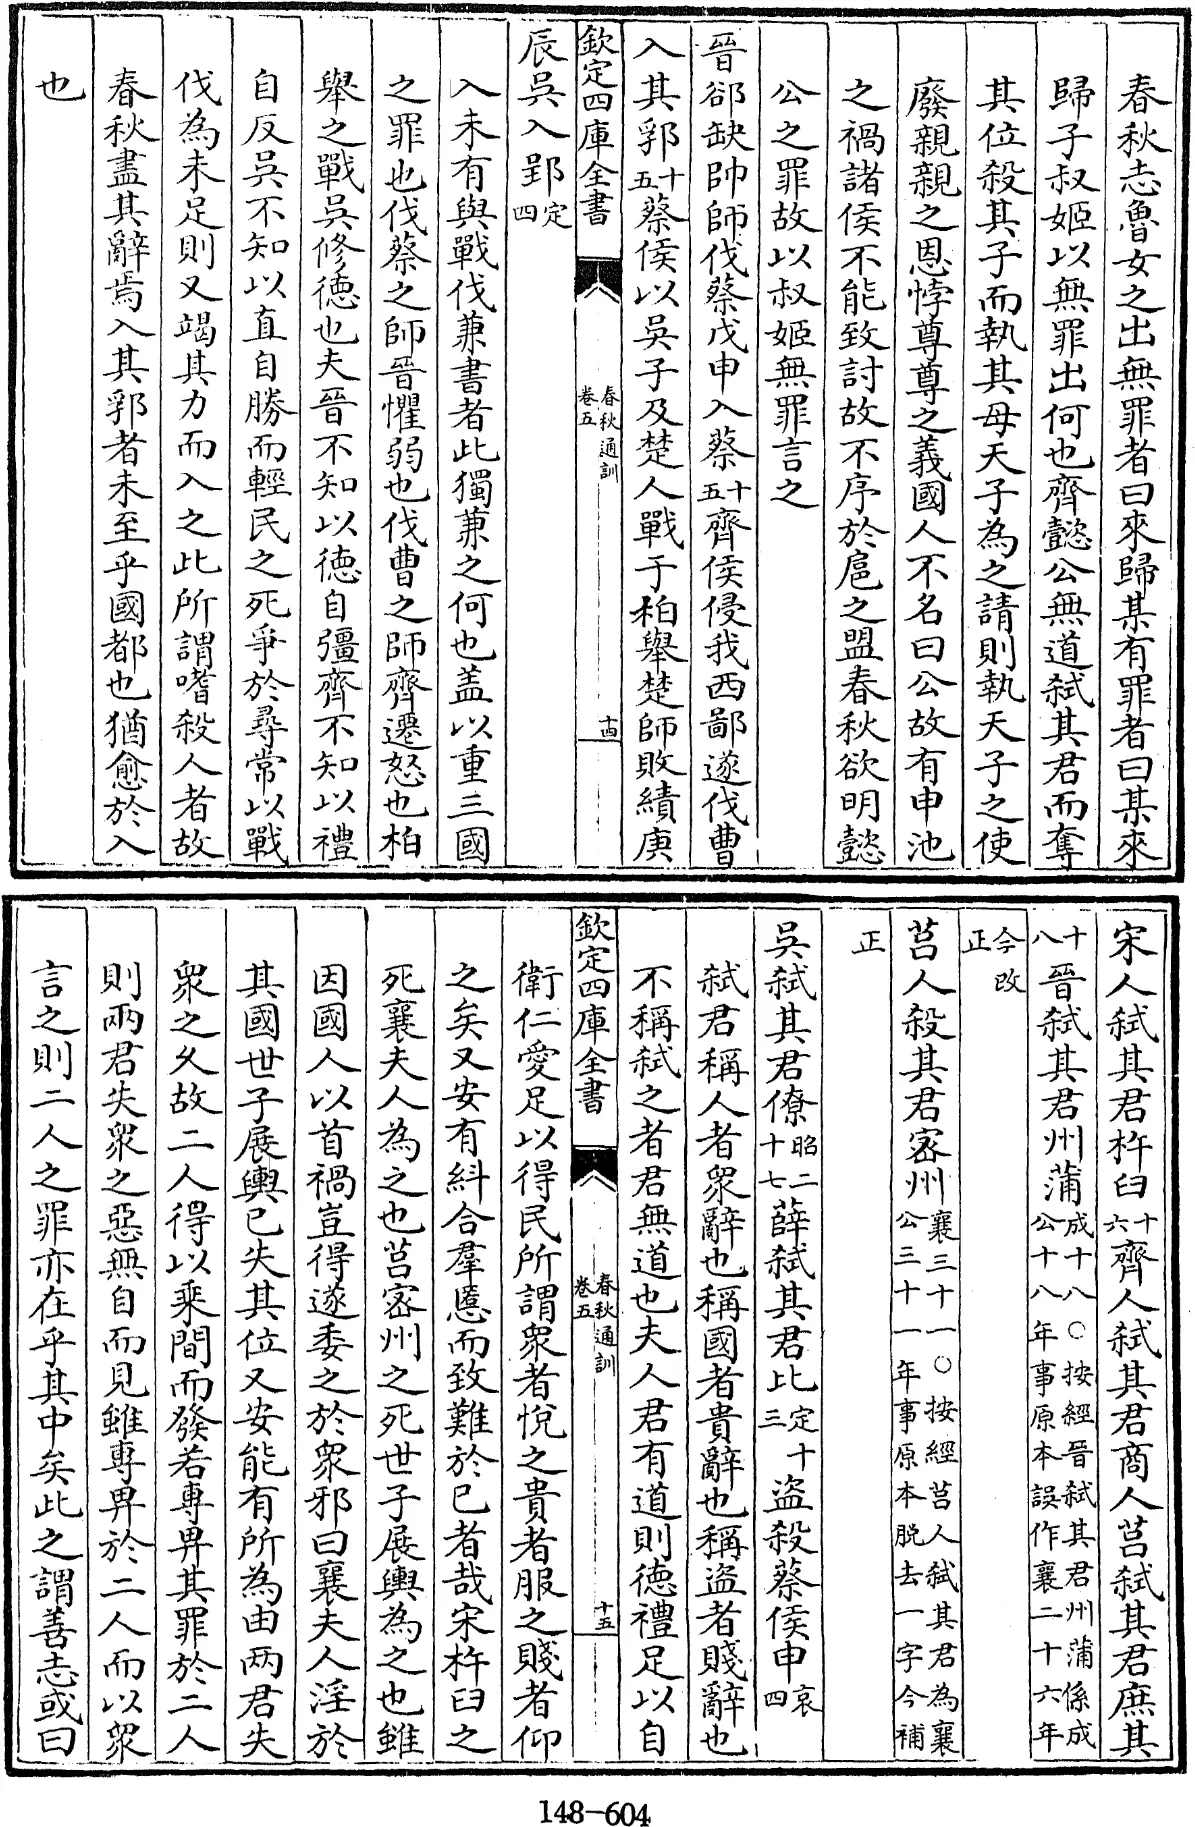 春秋志魯女之出無罪者曰來歸某有罪者曰某來
歸子叔姬以無罪出何也齊懿公無道弑其君而奪
其位殺其子而執其母天子為之請則執天子之使
廢親親之恩悖尊尊之義國人不名曰公故有申池
之禍諸侯不能致討故不序於扈之盟春秋欲明懿
公之罪故以叔姬無罪言之
晉郤缺帥師伐蔡戊申入蔡十五齊侯侵我西鄙遂伐曹
入其郛十五蔡侯以吳子及楚人戰于柏舉楚師敗績庚
欽定四庫全書
春秋通訓
卷五
十四
辰吳入郢定四
入未有與戰伐兼書者此獨兼之何也蓋以重三國
之罪也伐蔡之師晉懼弱也伐曹之師齊遷怒也柏
舉之戰吳修德也夫晉不知以德自彊齊不知以禮
自反吳不知以直自勝而輕民之死爭於尋常以戰
伐為未足則又竭其力而入之此所謂嗜殺人者故
春秋盡其辭焉入其郛者未至乎國都也猶愈於入
也
宋人弑其君杵臼十六齊人弑其君商人莒弑其君庶其
十八晉弑其君州蒲成十八○按經晉弑其君州蒲係成公十八年事原本誤作襄二十六年
今改正
莒人殺其君密州襄三十一○按經莒人弑其君為襄公三十一年事原本脱去一字今補
正
吳弑其君僚昭二十七薛弑其君比定十三盜殺蔡侯申哀四
弑君稱人者衆辭也稱國者貴辭也稱盜者賤辭也
不稱弑之者君無道也夫人君有道則德禮足以自
欽定四庫全書
春秋通訓
卷五
十五
衛仁愛足以得民所謂衆者悅之貴者服之賤者仰
之矣又安有糾合羣慝而致難於已者哉宋杵臼之
死襄夫人為之也莒密州之死世子展輿為之也雖
因國人以首禍豈得遂委之於衆邪曰襄夫人淫於
其國世子展輿已失其位又安能有所為由兩君失
衆之久故二人得以乘間而發若專畀其罪於二人
則兩君失衆之惡無自而見雖專畀於二人而以衆
言之則二人之罪亦在乎其中矣此之謂善志或曰
148-604